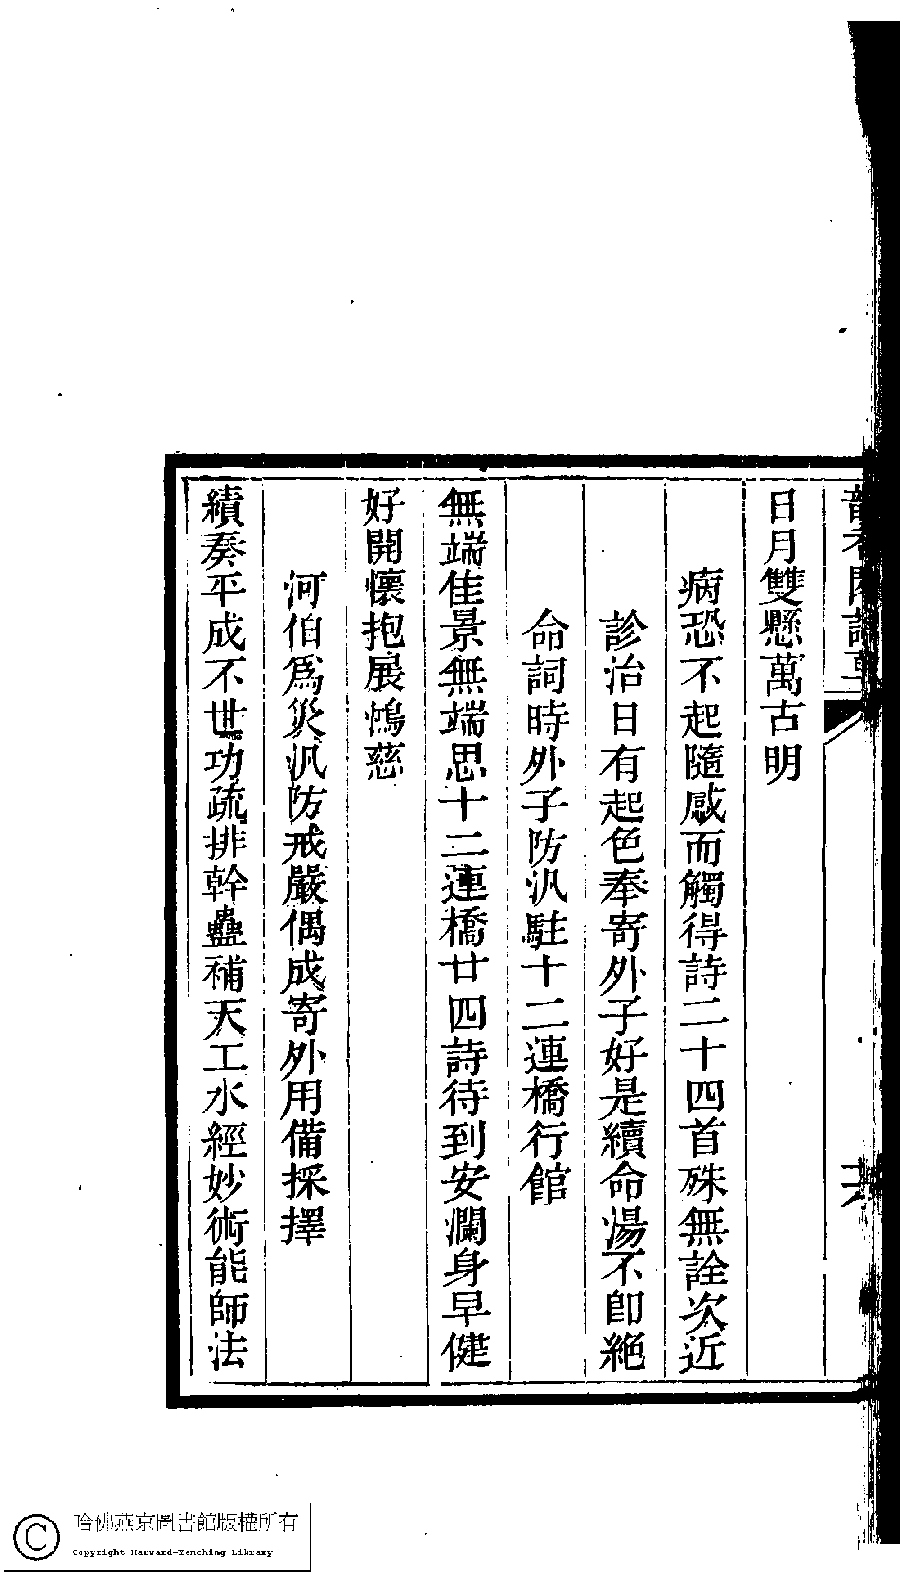 日月雙懸萬古明
病恐不起隨感而觸得詩二十四首殊無詮次近
診治日有起色奉寄外子好是續命湯不卽絕
命詞時外子防汛駐十二連橋行館
無端佳景無端思十二連橋廿四詩待到安瀾身早健
好開懷抱展慈
河伯爲災汛防戒嚴偶成寄外用備採擇
績奏平成不世功疏排幹蠱補天工水經妙術能師法
哈佛燕京圖書館版權所有
Copyright Harvard-Yenching Library